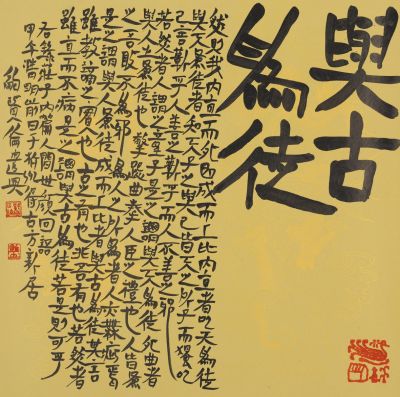 與古
為徒
然則我內直而外曲成而上比內直者與天為徒
與天為徒者知天子之與己皆天之所子而獨以
己言蘄乎而人善之蘄乎而人不善之邪
若然者人謂之童子是之謂與天為徒外曲者
與人之為徒也擎跽曲拳人臣之禮也人皆為
之吾敢不為邪為人之所為者人亦無疵焉
是之謂與人為徒成而上比者與古為徒其言
雖教謫之實也古之有也非吾有也若然者
雖直而不病是之謂與古為徒若是則可乎
右錄莊子內篇人間世顏回語
甲午清明前日于 古方新居
鮑賢倫